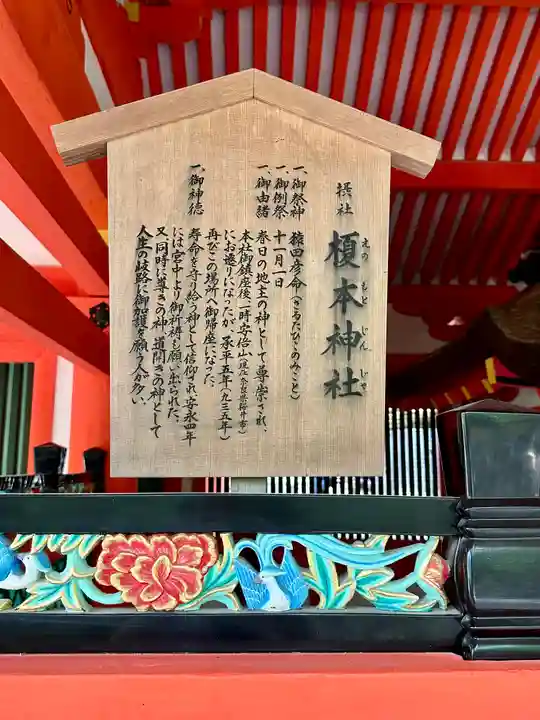 摂社
榎本神社
えのもとじんじゃ
一、御祭神 猿田彦命(さるたひこのみこと)
一、御例祭 十一月一日
一、御由緒 春日の地主の神として尊崇され、
本社御鎮座後一時安倍山(現在奈良県桜井市)
にお遷りになったが、承平五年(九三五年)
再びこの場所へ御帰座になった。
一、御神徳 寿命を守り給う神として信仰され安永四年
には宮中より御祈祷も願い出られた。
又同時に導きの神、道開きの神として
人生の岐路に御加護を願う人が多い。